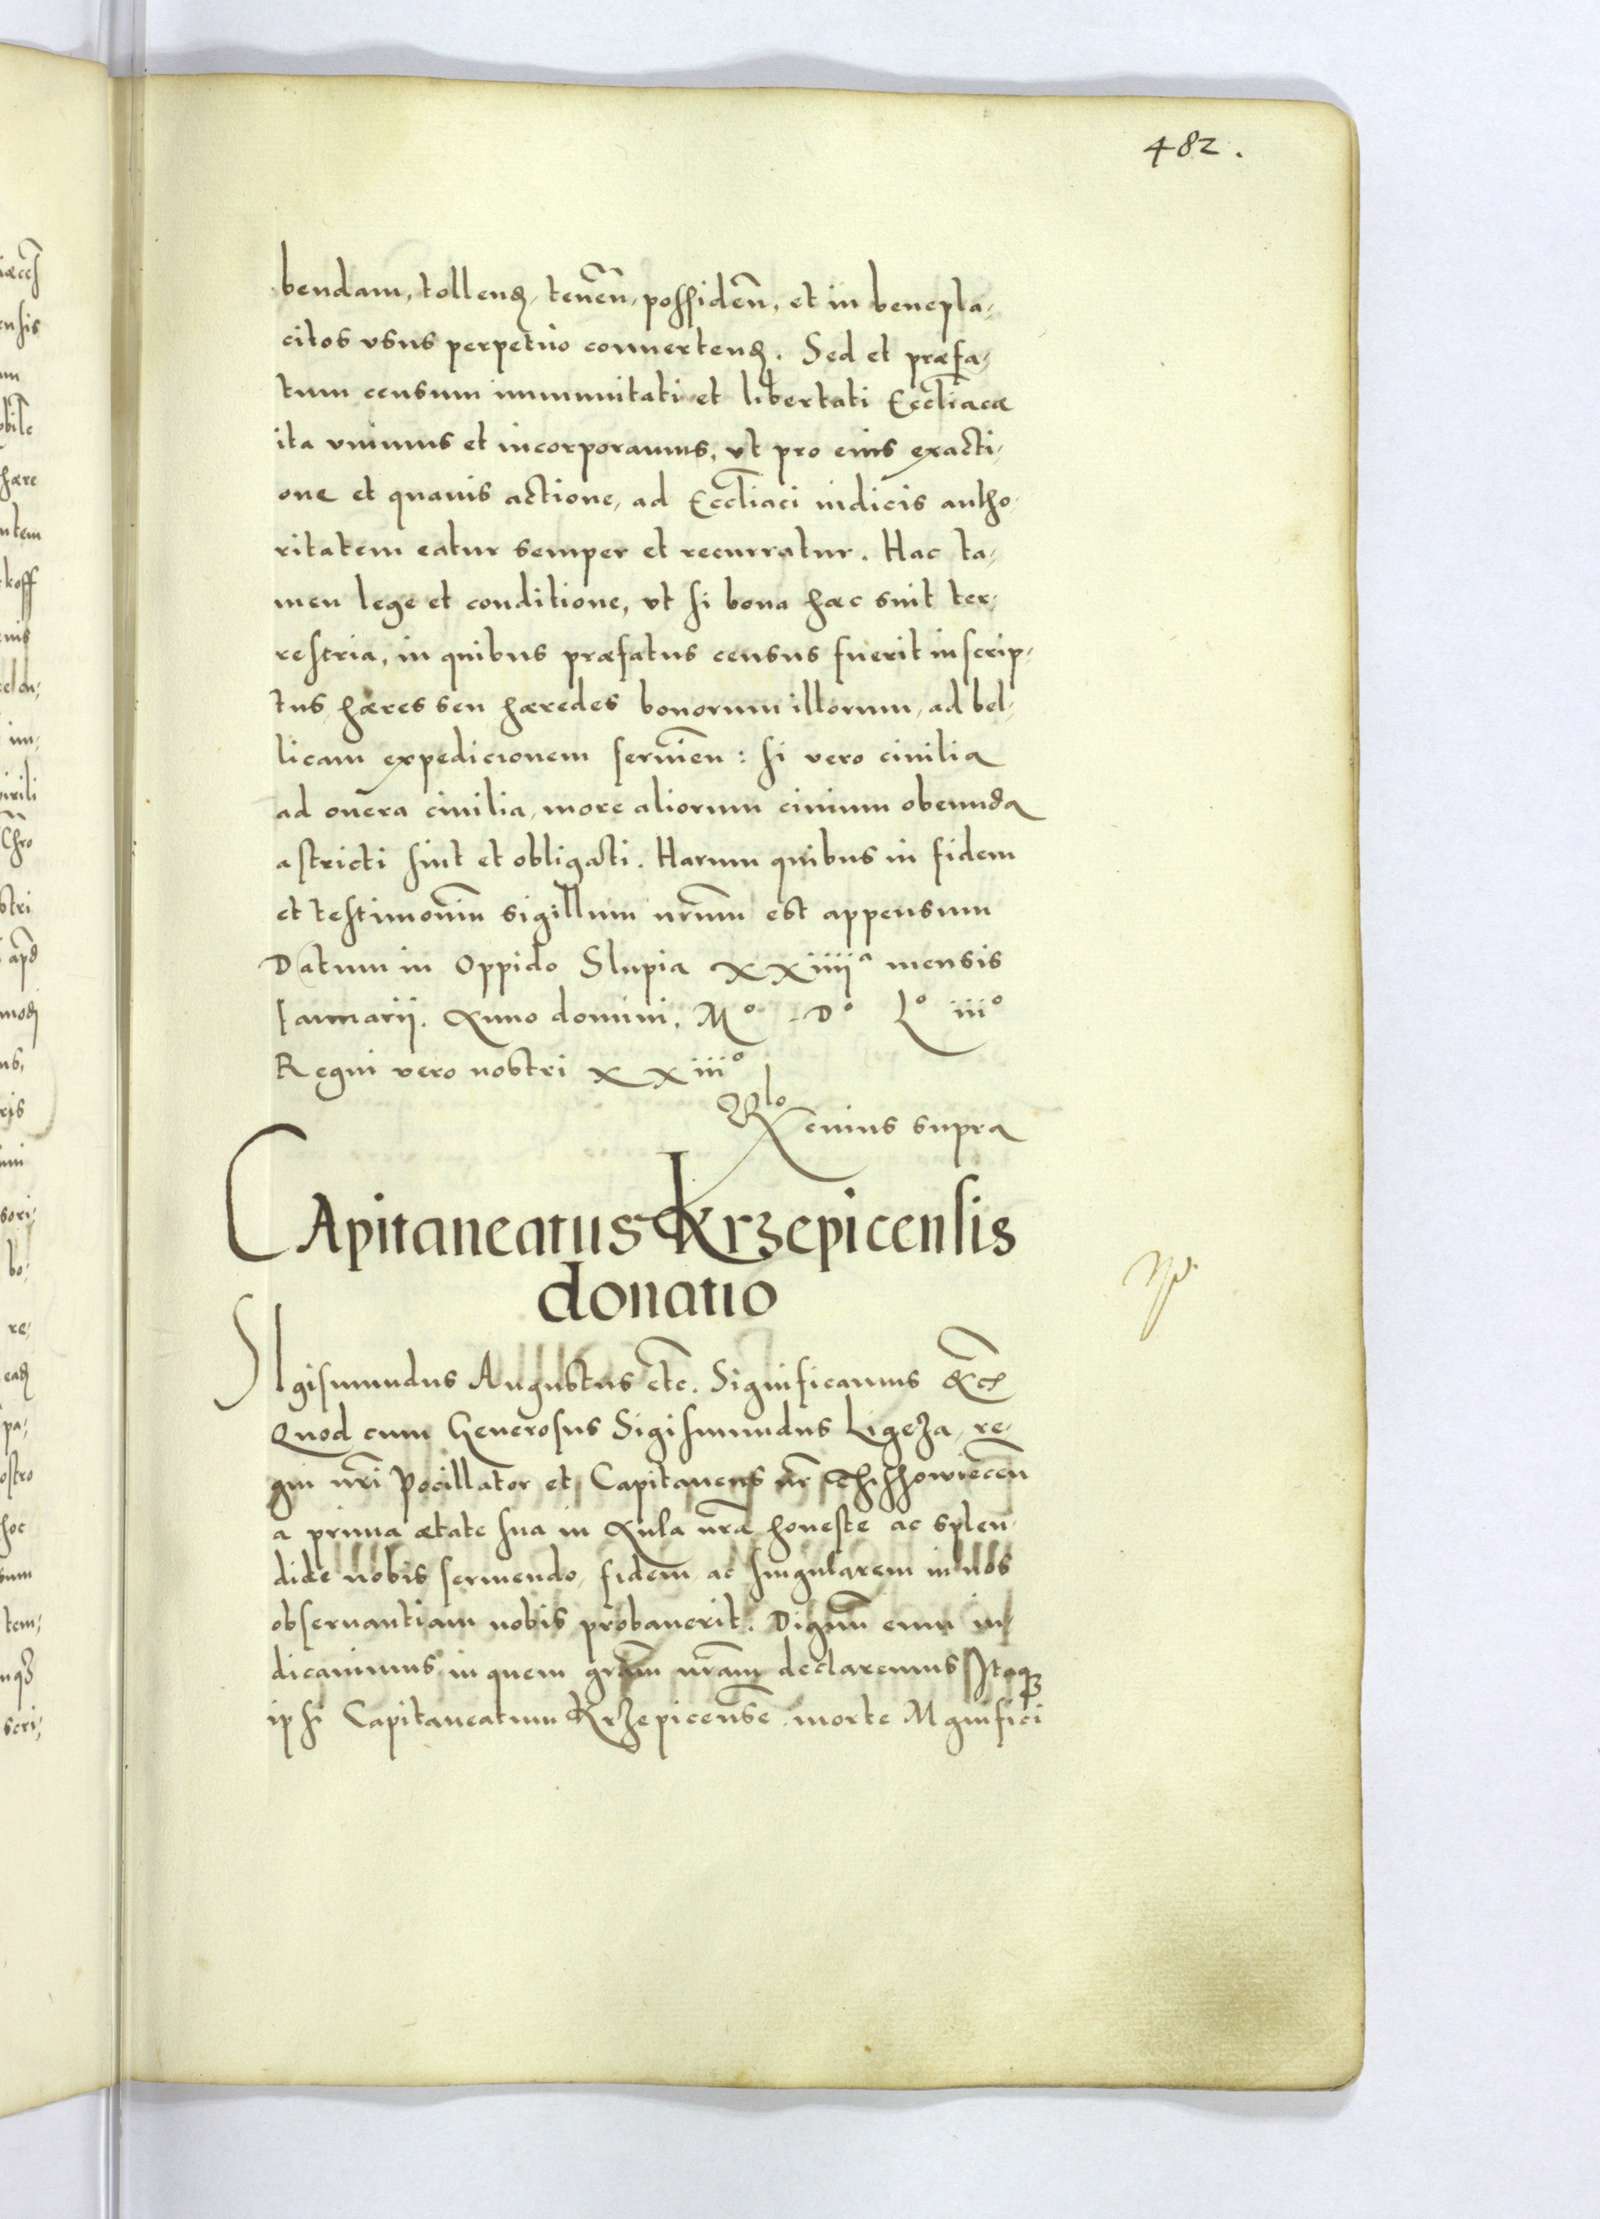 482.
bendam, tollend, tenen, possiden, et in benepla-
citos vsus perpetuo conuertend. Sed et præfa-
tum censum immunitati et libertati Eccliacæ
ita vnimus et incorporamus, vt pro eius exacti-
one et quauis actione, ad Eccliaci iudicis autho-
ritatem eatur semper et recurratur. Hac ta-
men lege et conditione, vt si bona hæc sint ter-
restria, in quibus præfatus census fuerit inscrip-
tus, hæres seu hæredes bonorum illorum, ad bel-
licam expedicionem seruien: si vero ciuilia
ad onera ciuilia, more aliorum ciuium obeunda
astricti sint et obligati. Harum quibus in fidem
et testimoniu sigillum nrum est appensum
Datum in Oppido Slupia XXiiij a mensis
Januarij. Anno domini, Mo Do Lo iiio
Regni vero nostri XXiiio
Rlo cuius supra
CApitaneatus Krzepicensis
donatio
SIgismundus Augustus etc. Significamus &c
Quod cum Generosus Sigismundus Ligeza, re-
gni nri Pocillator et Capitaneus nr
a prima ætate sua in Aula nra honeste ac splen-
dide nobis seruiendo, fidem ac singularem in nos
obseruantiam nobis probauerit. Dignu eum iu-
dicauimus in quem gram nram declaremus Itaq
ipsi Capitaneatum Krzepicense morte Mgnifici